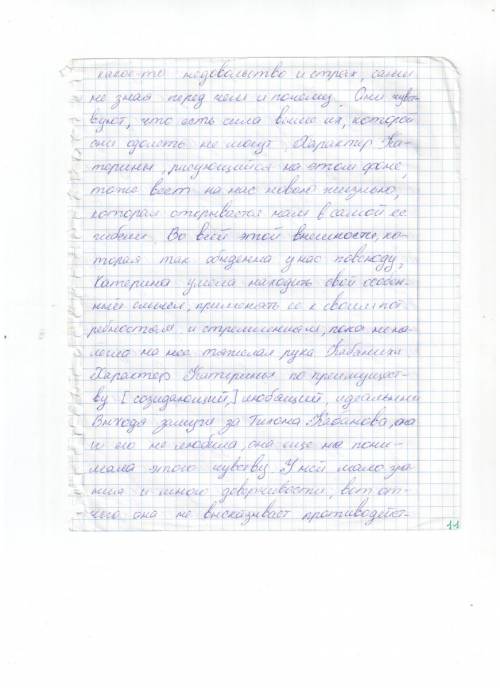 какое-то недовольство и страх, сами
не зная перед чем и почему. Они чувст-
вуют, что есть сила выше их, которой
они одолеть не могут. Характер Ка-
терины, рисующийся на этом фоне,
тоже веет на нас новою жизнью,
которая открывается нам в самой её
гибели. Во всей этой внешности, ко-
торая так обыденна у нас повсюду,
Катерина умела находить свой особен-
ный смысл, применять её к своим пот
ребностям и стремлениям, пока не на-
легла на нее тяжелая рука Кабанихи
Характер Катерины по преимущест-
ву [созидающий,] любящий, идеальный
Выходя замуж за Тихона Кабанова, она
и его не любила, она еще не пони-
мала этого чувству. У ней мало зна
ния и много доверчивости, вот от-
чего она не высказывает противодейст-
11